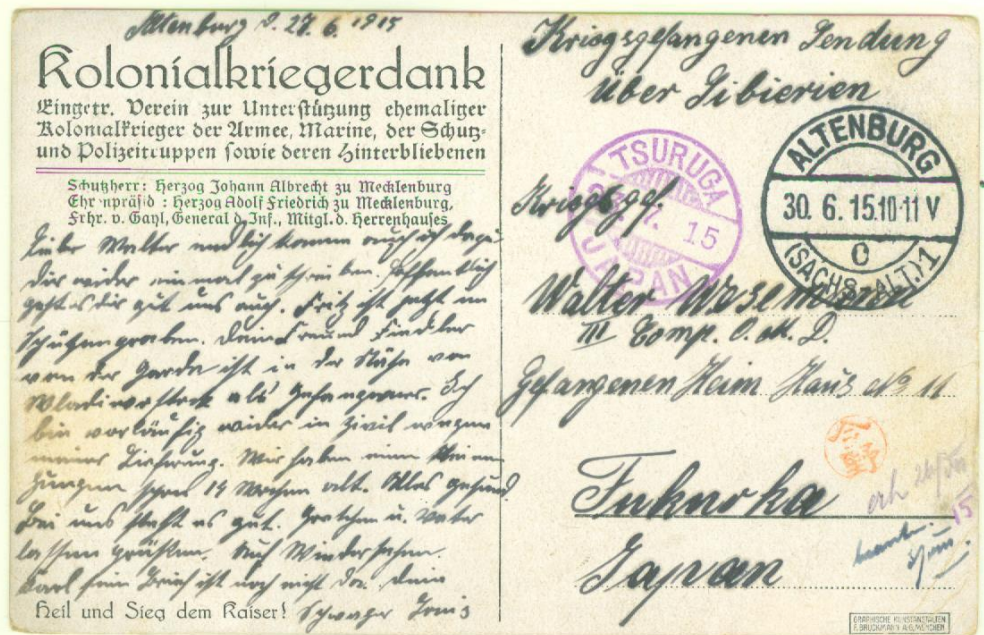 Altenburg d. 27. 6. 1915
Kolonialkriegerdank
Eingetr. Verein zur Unterstützung ehemaliger
Kolonialkrieger der Armee, Marine, der Schutz-
und Polizeitruppen sowie deren Hinterbliebenen
Schutzherr: Herzog Johann Albrecht zu Mecklenburg
Ehrenpräsid: Herzog Adolf Friedrich zu Mecklenburg,
Frhr. v. Gayl, General d. Inf., Mitgl. d. Herrenhauses
Liebe Walter endlich komme auch ich dazu
dir wider einmal zu schreiben. Hoffentlich
geht es dir gut uns auch. Fritz ist jetzt im
Schützengraben. Dein Freund Findler
von der Garde ist in der Nähe von
Wladiwostock als Gefangener. Ich
bin vorläufig wider in Zivil wegen
meiner Lieferung. Wir haben einen kleinen
Jungen schon 14 Wochen alt. Alles gesund
Bei uns steht es gut. Gretchen u. Vater
lassen grüßen. Auf Wiedersehen.
Karl sein Brief ist noch nicht da. Dein
Schwager
Heil und Sieg dem Kaiser!
Kriegsgefangenen Sendung
Über Sibierien
TSURUGA
7. 15
JAPAN
ALTENBURG
30. 6. 15.10-11 V
c
(SACHS.-ALT.) 1
Kriegsgef.
Walter
III Comp. O. M. D.
Gefangenen Heim Haus No 11
Fukuoka
Japan
15
GRAPHISCHE KUNSTANSTALTEN
F. BRUCKMANN A.G. MÜNCHEN